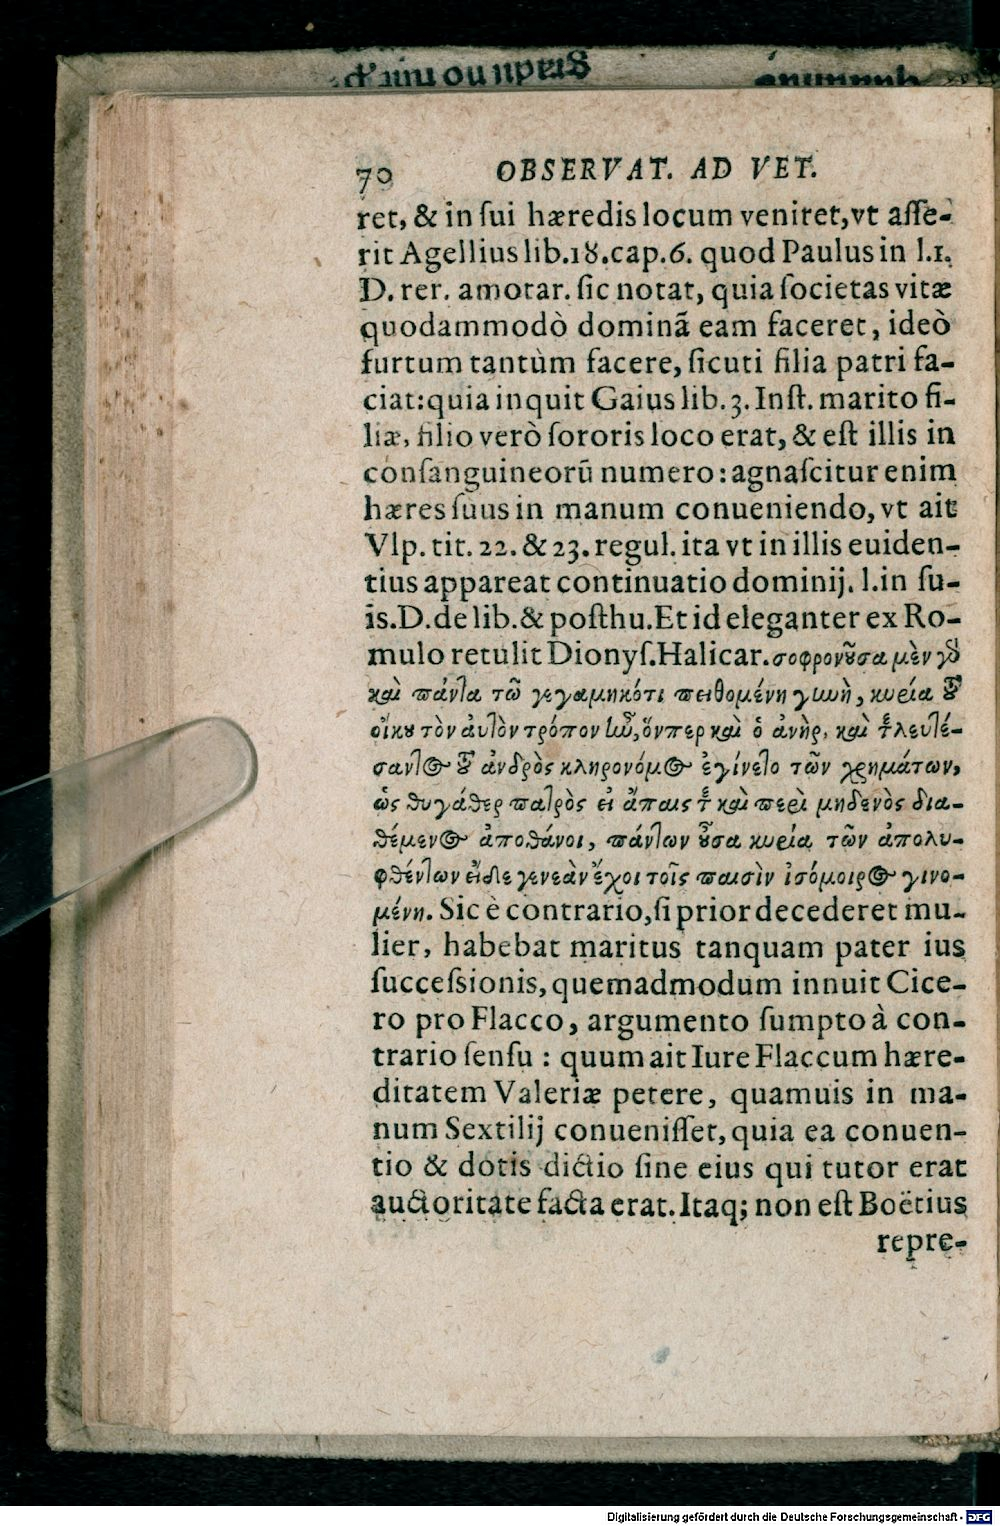 70 OBSERVAT. AD VET.
ret, & in ſui hæredis locum veniret, vt aſſe-
rit Agellius lib.18.cap.6. quod Paulus in l.1.
D. rer. amotar. ſic notat, quia ſocietas vitæ
quodammodò dominã eam faceret, ideò
furtum tantùm facere, ſicuti filia patri fa-
ciat: quia inquit Gaius lib.3. Inſt. marito fi-
liæ, filio verò ſororis loco erat, & eſt illis in
conſanguineorũ numero: agnaſcitur enim
hæres ſuus in manum conueniendo, vt ait
Vlp. tit. 22. & 23. regul. ita vt in illis euiden-
tius appareat continuatio dominij. l.in ſu-
is.D.de lib.& poſthu.Et id eleganter ex Ro-
mulo retulit Dionyſ.Halicar. σοφρονοῦσα μὲν γὸ
καὶ πάντα τῶ γεγαμηκότι πειθομένη γυνὴ, κυρία τοῦ
οἴκου τὸν αὐτὸν τρόπον ἦν, ὅνπερ καὶ ὁ ἀνὴρ, καὶ τελευτέ-
σαντος τοῦ ἀνδρὸς κληρονόμος ἐγίνετο τῶν χρημάτων,
ὡς θυγάθερ πατρὸς εἰ ἄπαις τε καὶ περὶ μηδενὸς δια-
θέμενος ἀποθάνοι, πάντων οὖσα κυρία τῶν ἀπολυ-
φθέντων εἴδε γενεὰν ἔχοι τοῖς παισὶν ἰσόμοιρος γινο-
μένη. Sic è contrario, ſi prior decederet mu-
lier, habebat maritus tanquam pater ius
ſucceſsionis, quemadmodum innuit Cice-
ro pro Flacco, argumento ſumpto à con-
trario ſenſu : quum ait Iure Flaccum hære-
ditatem Valeriæ petere, quamuis in ma-
num Sextilij conueniſſet, quia ea conuen-
tio & dotis dictio ſine eius qui tutor erat
auctoritate facta erat. Itaq; non eſt Boëtius
repre-
Digitalisierung gefördert durch die Deutsche Forschungsgemeinschaft - DFG